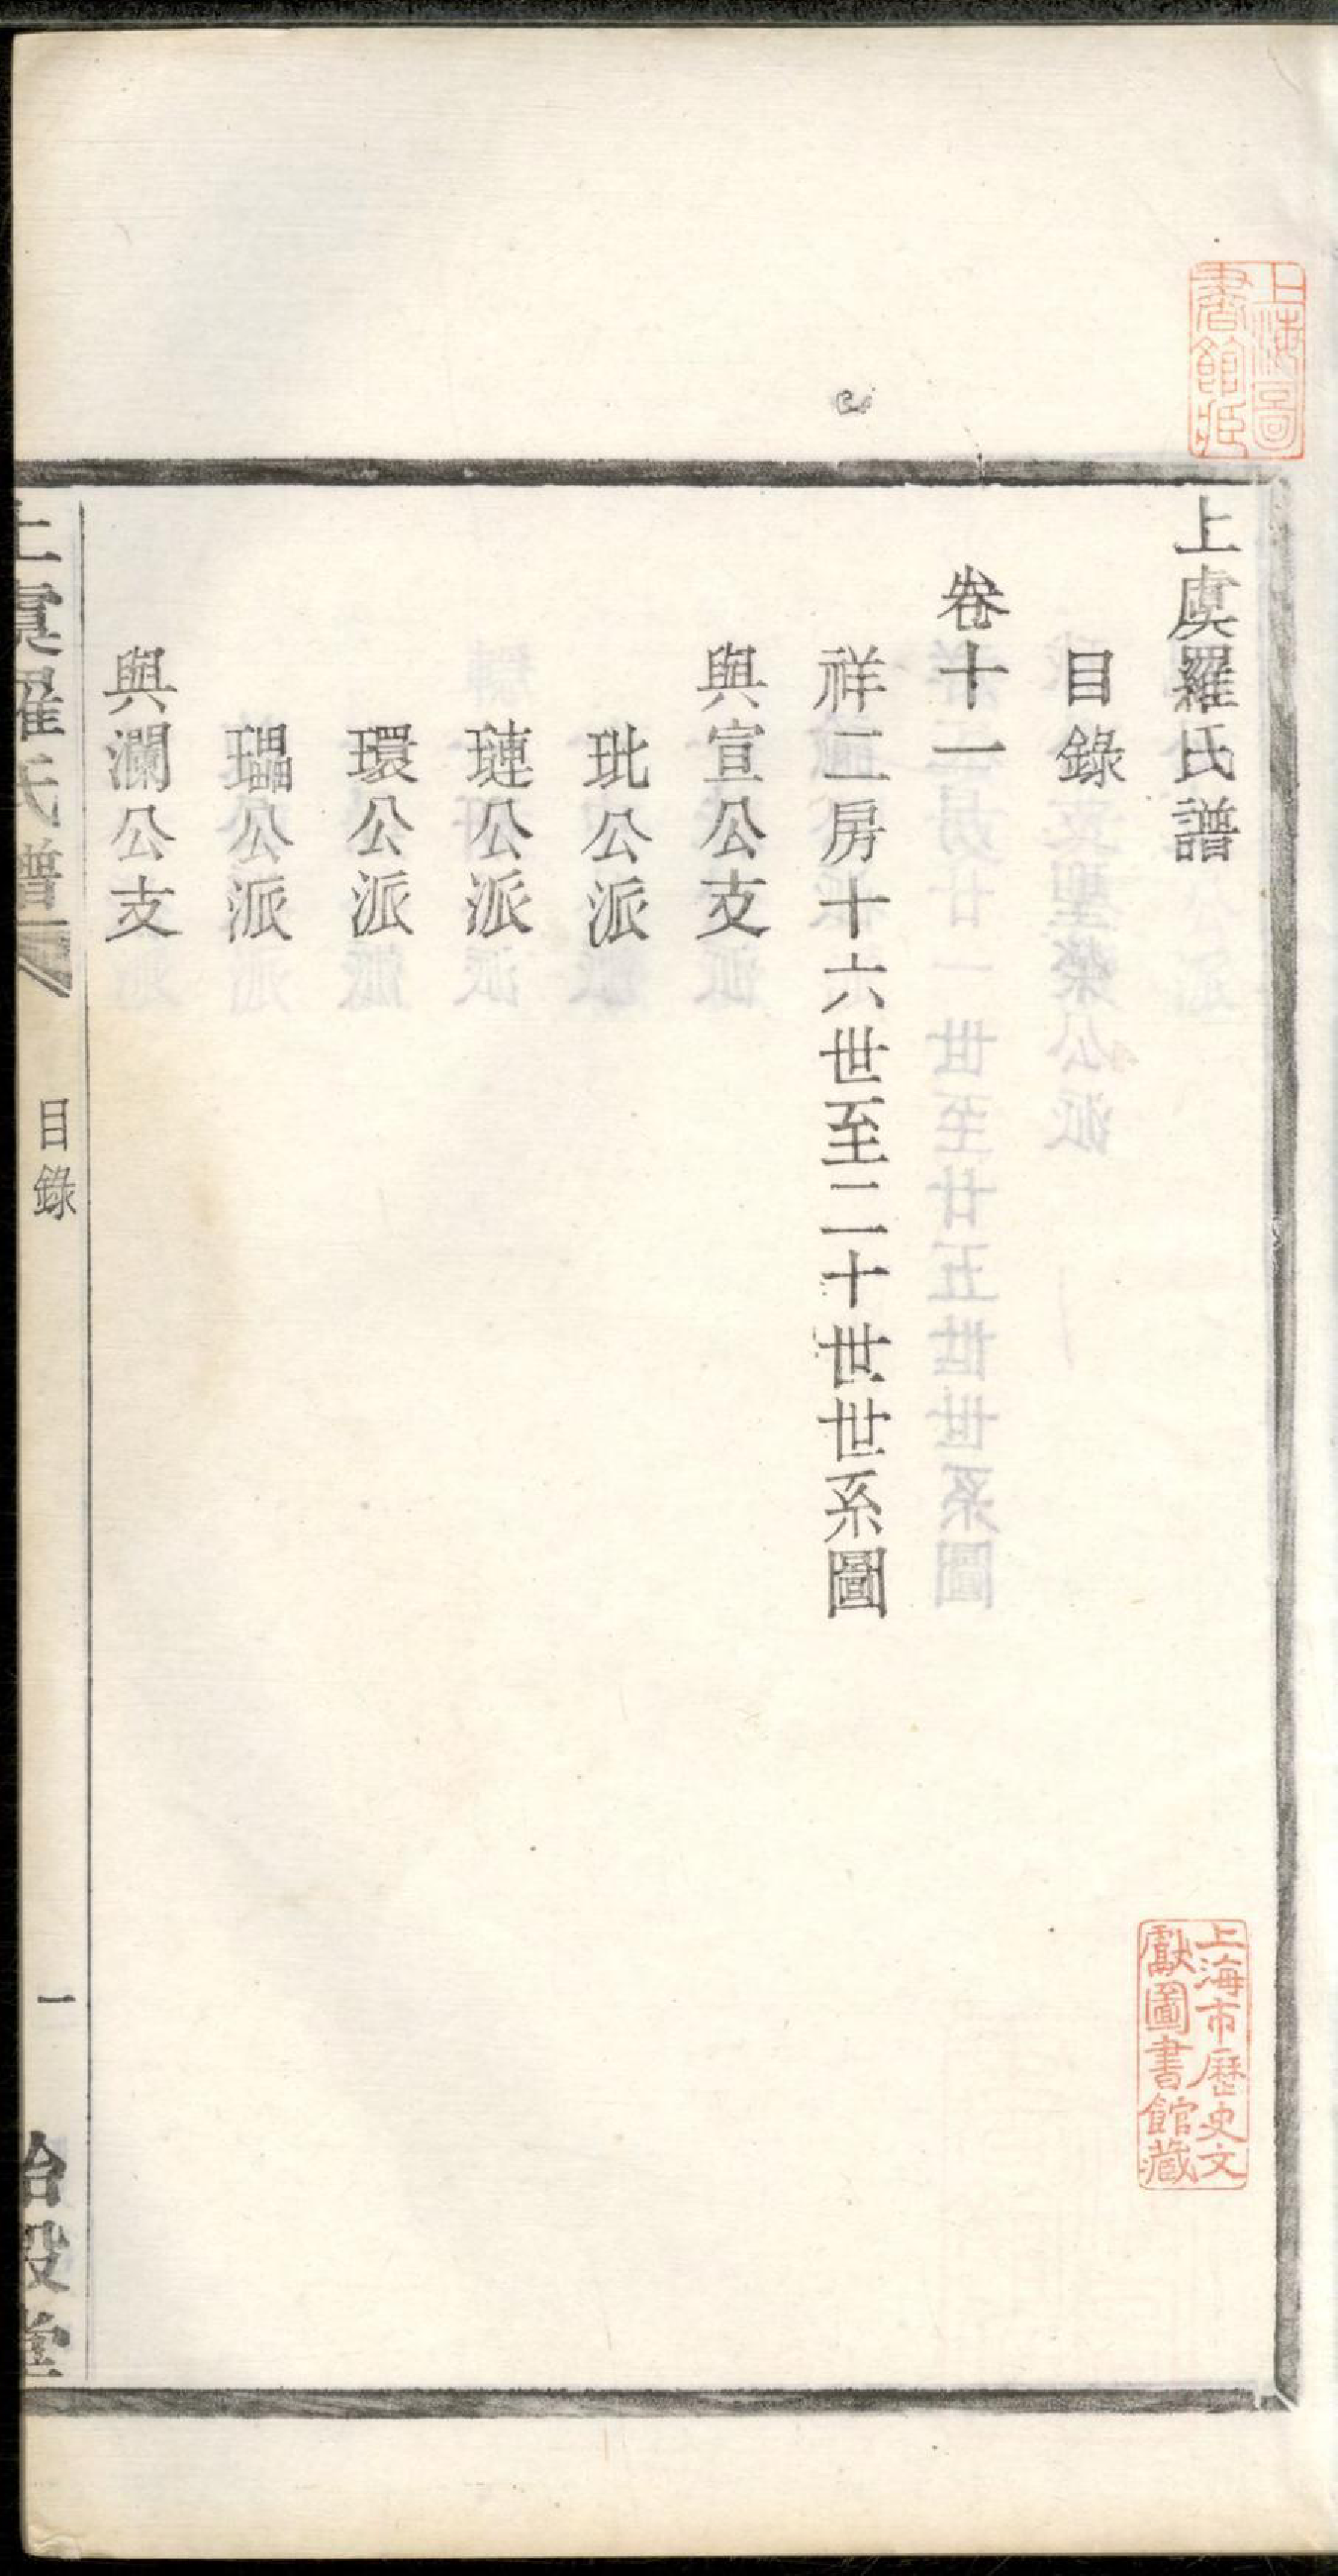 上虞羅氏譜
目錄
卷十一
祥二房十六世至二十世世系圖
與宣公支
玭公派
璉公派
環公派
公派
與瀾公支
上虞羅氏譜
目錄
一
治穀堂
上海圖
書館藏
上海市歷史文
獻圖書館藏